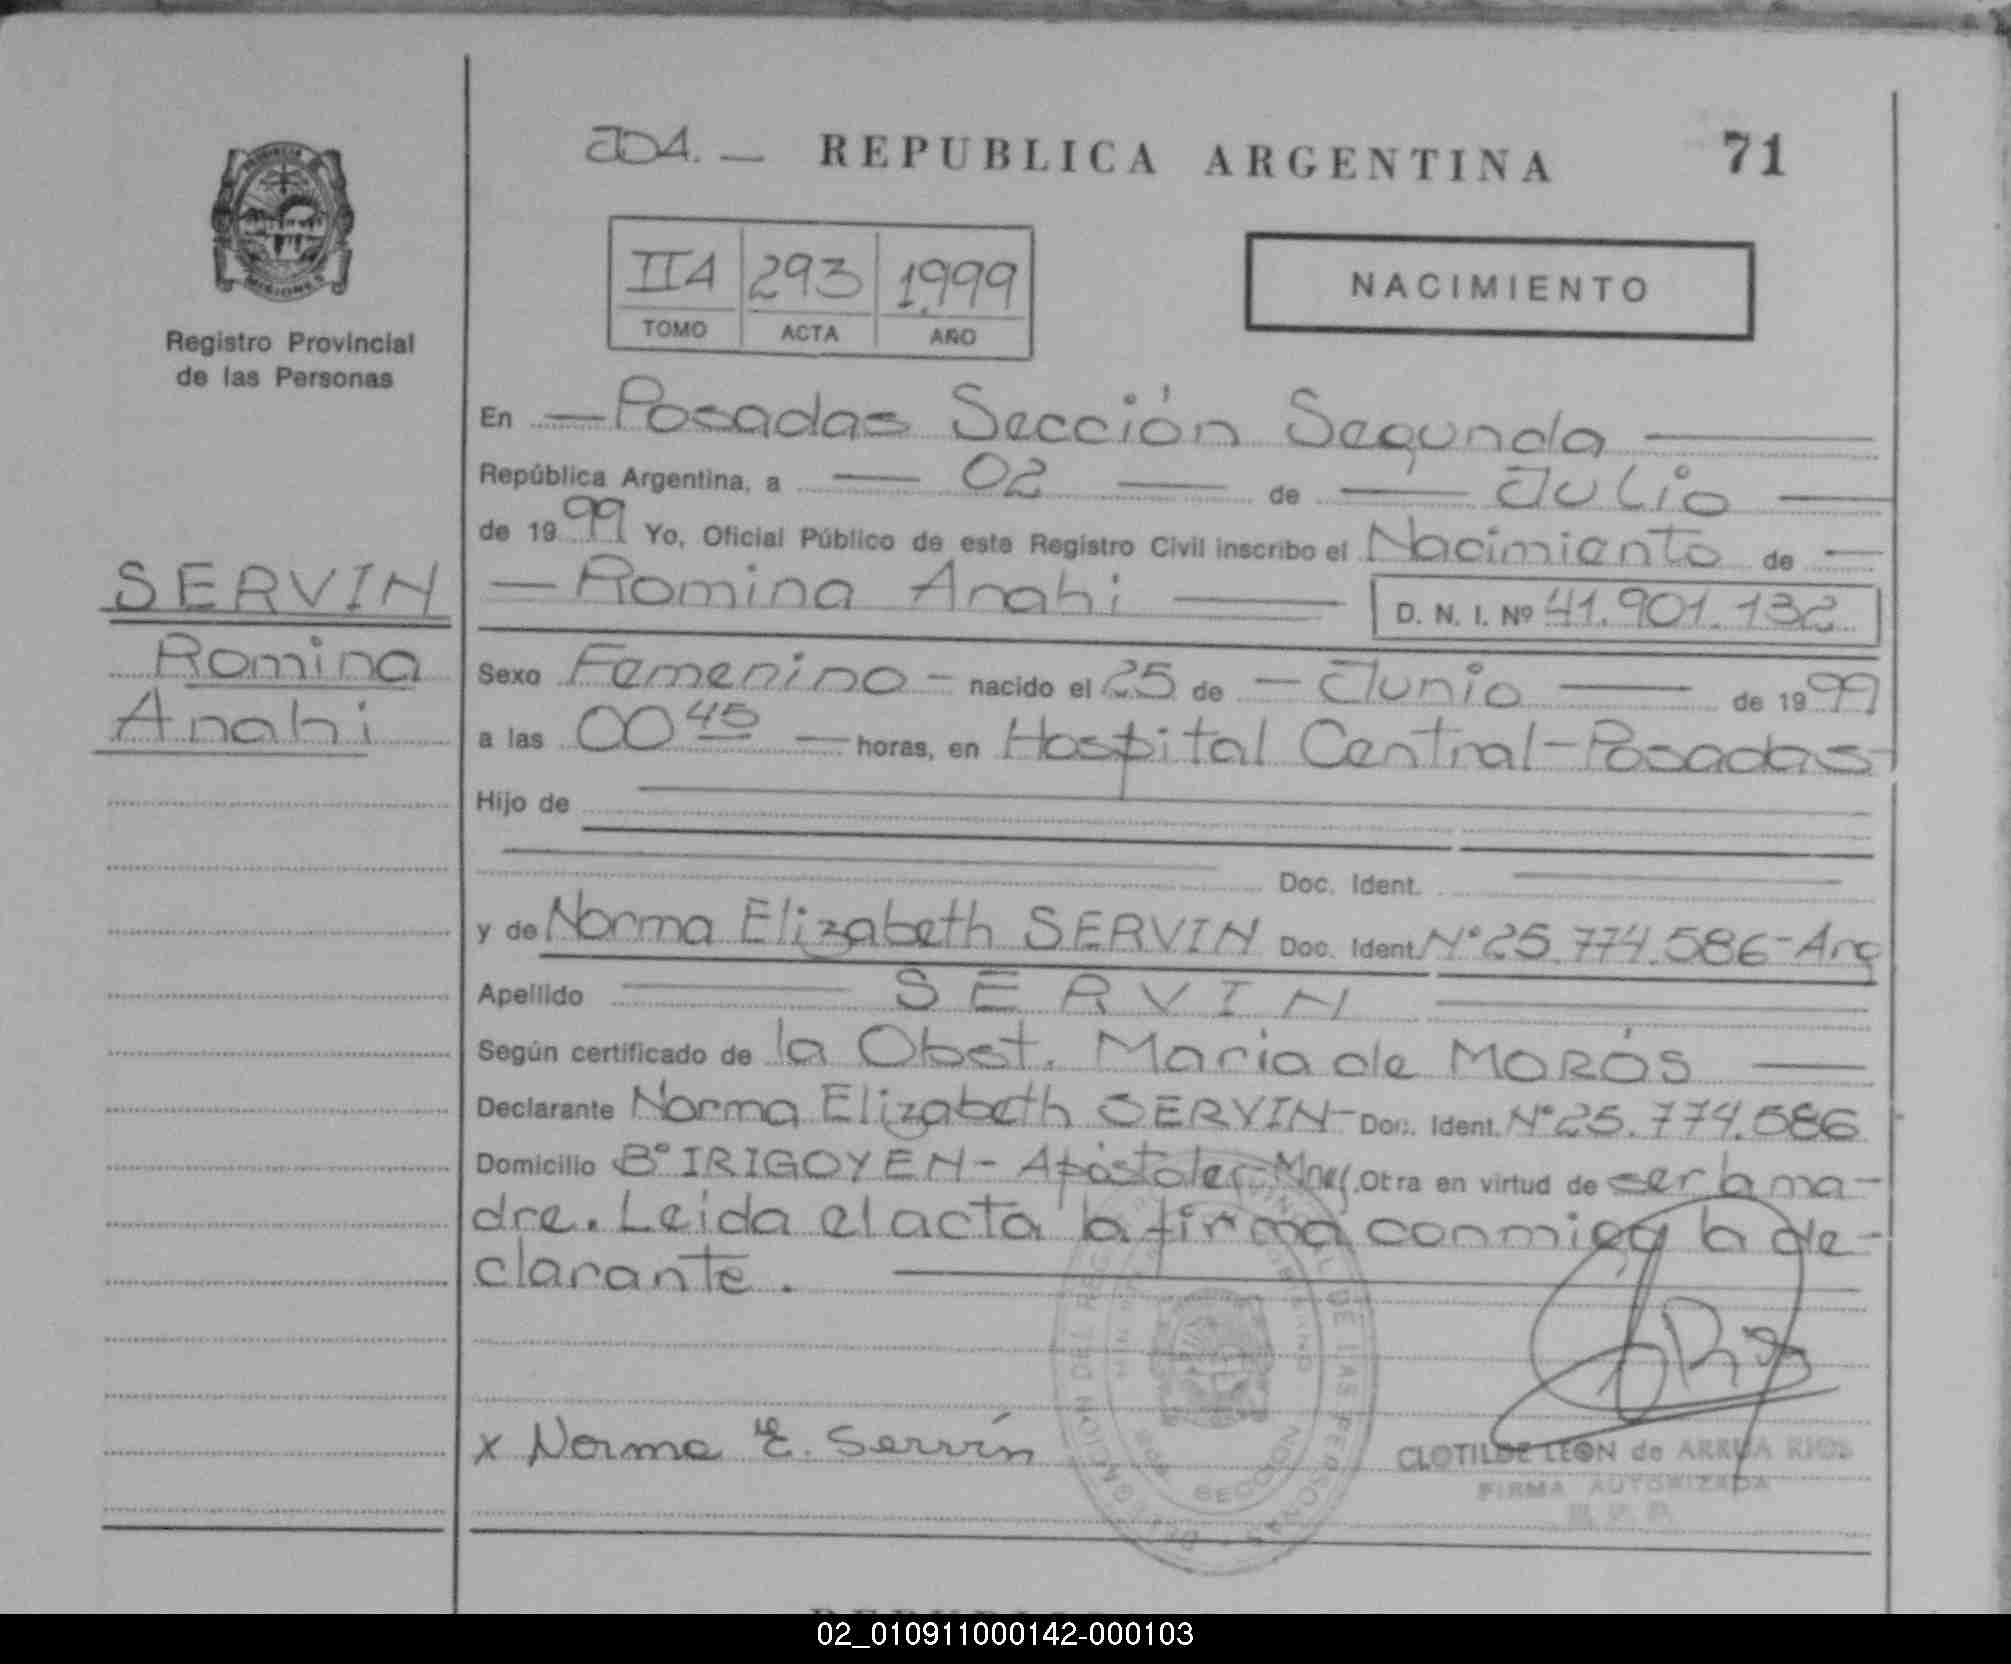 REPUBLICA ARGENTINA 71
II A 293 1.999
TOMO ACTA AÑO
NACIMIENTO
Registro Provincial
de las Personas
SERVIN
Romina
Anahi
En Posadas Sección Segunda
República Argentina, a 02 de Julio
de 1999 Yo, Oficial Público de este Registro Civil inscribo el Nacimiento de
Romina Anahi D. N. I. Nº 41.901.132
Sexo Femenino - nacido el 25 de Junio de 1999
a las 00 45 horas, en Hospital Central - Posadas
Hijo de
Doc. Ident.
y de Norma Elizabeth SERVIN Doc. Ident. Nº 25.774.586 - Arg
Apellido SERVIN
Según certificado de la Obst. Maria de MORÓS
Declarante Norma Elizabeth SERVIN - Doc. Ident. Nº 25.774.586
Domicilio Bº IRIGOYEN - Apóstoles - Mnes. Otra en virtud de ser la ma-
dre. Leida el acta la firma conmigo la de-
clarante.
x Norma E. Servín
CLOTILDE LEON de ARRUA RIOS
FIRMA AUTORIZADA
02_010911000142-000103